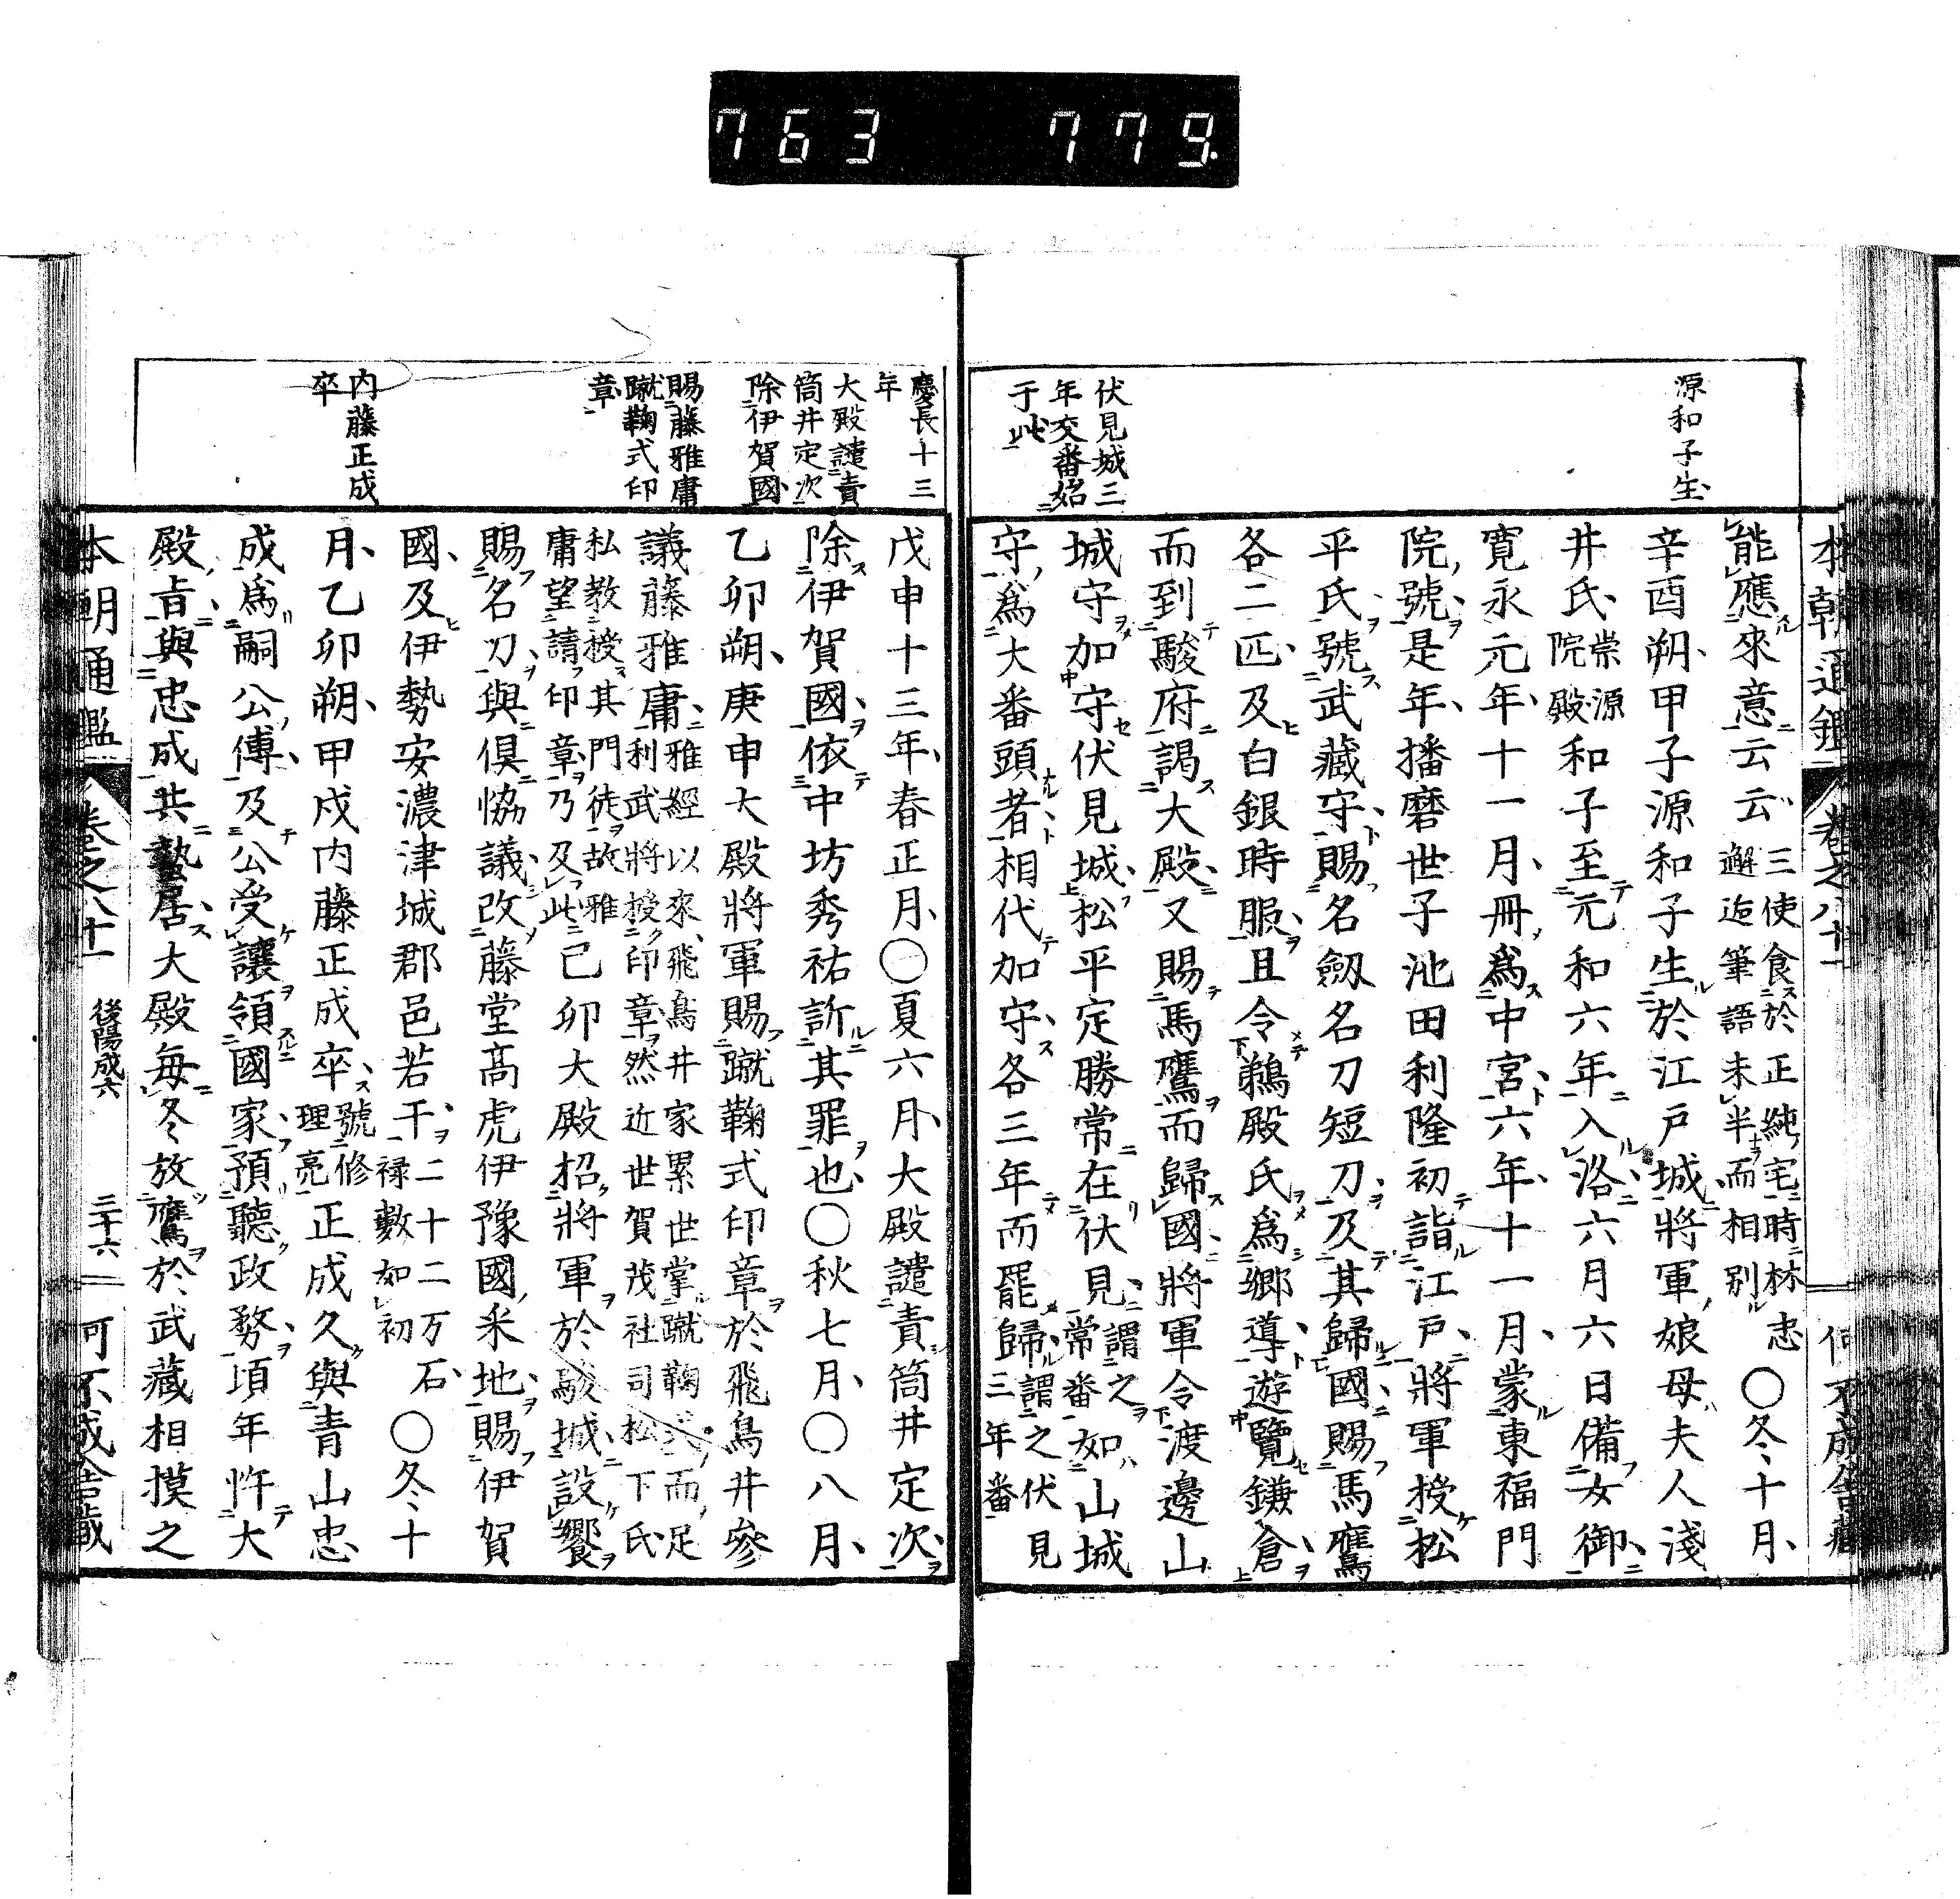 763 779
本朝通鑑 卷之八十一
源和子生
伏見城三
年交番始
于此
能應來意云云 三使食於正純宅時林忠
邂逅筆語未半而相別 〇冬十月
辛酉朔甲子源和子生於江戸城將軍娘母夫人淺
井氏 崇源
院殿 和子至元和六年入洛六月六日備女御
寛永元年十一月冊爲中宮六年十一月蒙東福門
院號是年播磨世子池田利隆初詣江戸將軍授松
平氏號武藏守賜名劔名刀短刀及其歸國賜馬鷹
各二匹及白銀時服且令鵜殿氏爲郷導遊覽鎌倉
而到駿府謁大殿又賜馬鷹而歸國將軍令渡邊山
城守加守伏見城松平定勝常在伏見 謂之
常番 如山城
守爲大番頭者相代加守各三年而罷歸 謂之伏見
三年番
慶長十三
年
大殿譴責
筒井定次
除伊賀國
賜藤雅庸
蹴鞠式印
章
内藤正成
卒
戊申十三年春正月〇夏六月大殿譴責筒井定次
除伊賀國依中坊秀祐訴其罪也〇秋七月〇八月
乙卯朔庚申大殿將軍賜蹴鞠式印章於飛鳥井參
議藤雅庸 雅經以來飛鳥井家累世掌蹴鞠而足
利武將授印章然近世賀茂社司松下氏
私教授其門徒故雅
庸望請印章乃及此 己卯大殿招將軍於駿城設饗
賜名刀與倶恊議改藤堂高虎伊豫國釆地賜伊賀
國及伊勢安濃津城郡邑若干 二十二万石
禄數如初 〇冬十
月乙卯朔甲戌内藤正成卒 號修
理亮 正成久與青山忠
成爲嗣公傅及公受讓領國家預聽政務頃年忤大
殿旨與忠成共蟄居大殿毎冬放鷹於武藏相摸之
本朝通鑑 卷之八十一 後陽成六 二十六